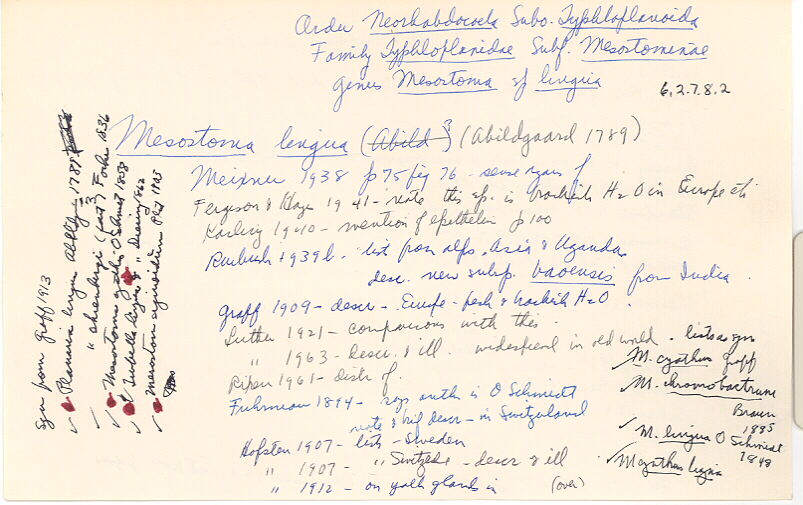 Order Neorhabdocoela Subo. Typhloplanoida
Family Typhloplanidae Subf. Mesostominae
Genus Mesostoma sp lingua
6.2.7.8.2
Mesostoma lingua (Abild) (Abildgaard 1789)
Meixner 1938 p75 fig 76 - sense organs of
Ferguson & Hayes 1941 - note this sp. is brackish H2O in Europe etc
Karling 1940 - mention of epithelium p100
Ruebush 1939b - list from alps, Asia & Uganda
desc. new subsp. from India.
Graff 1909 - descr - Europe - fresh & brackish H2O.
Luther 1921 - comparisons with this.
" 1963 - Descr. & ill. widespread in old world. lists as syn
M. cyathus Graff
M. chromobactrum Braun 1885
M. lingua O Schmidt 1848
M cyathus
Riper 1961 - distr of.
Fuhrmann 1894 - says author is O Schmidt
note & brief descr - in Switzerland
Hofsten 1907 - lists - Sweden
" 1907 - " Switzerld - descr & ill
" 1912 - on yolk glands in (over)
Syn from Graff 1913
Planaria lingua Abildg 1789
" ehrenbergi (part) Focke 1836
Mesostoma O Schmidt 1858
" Diesing 1862
Mesostoma 1903